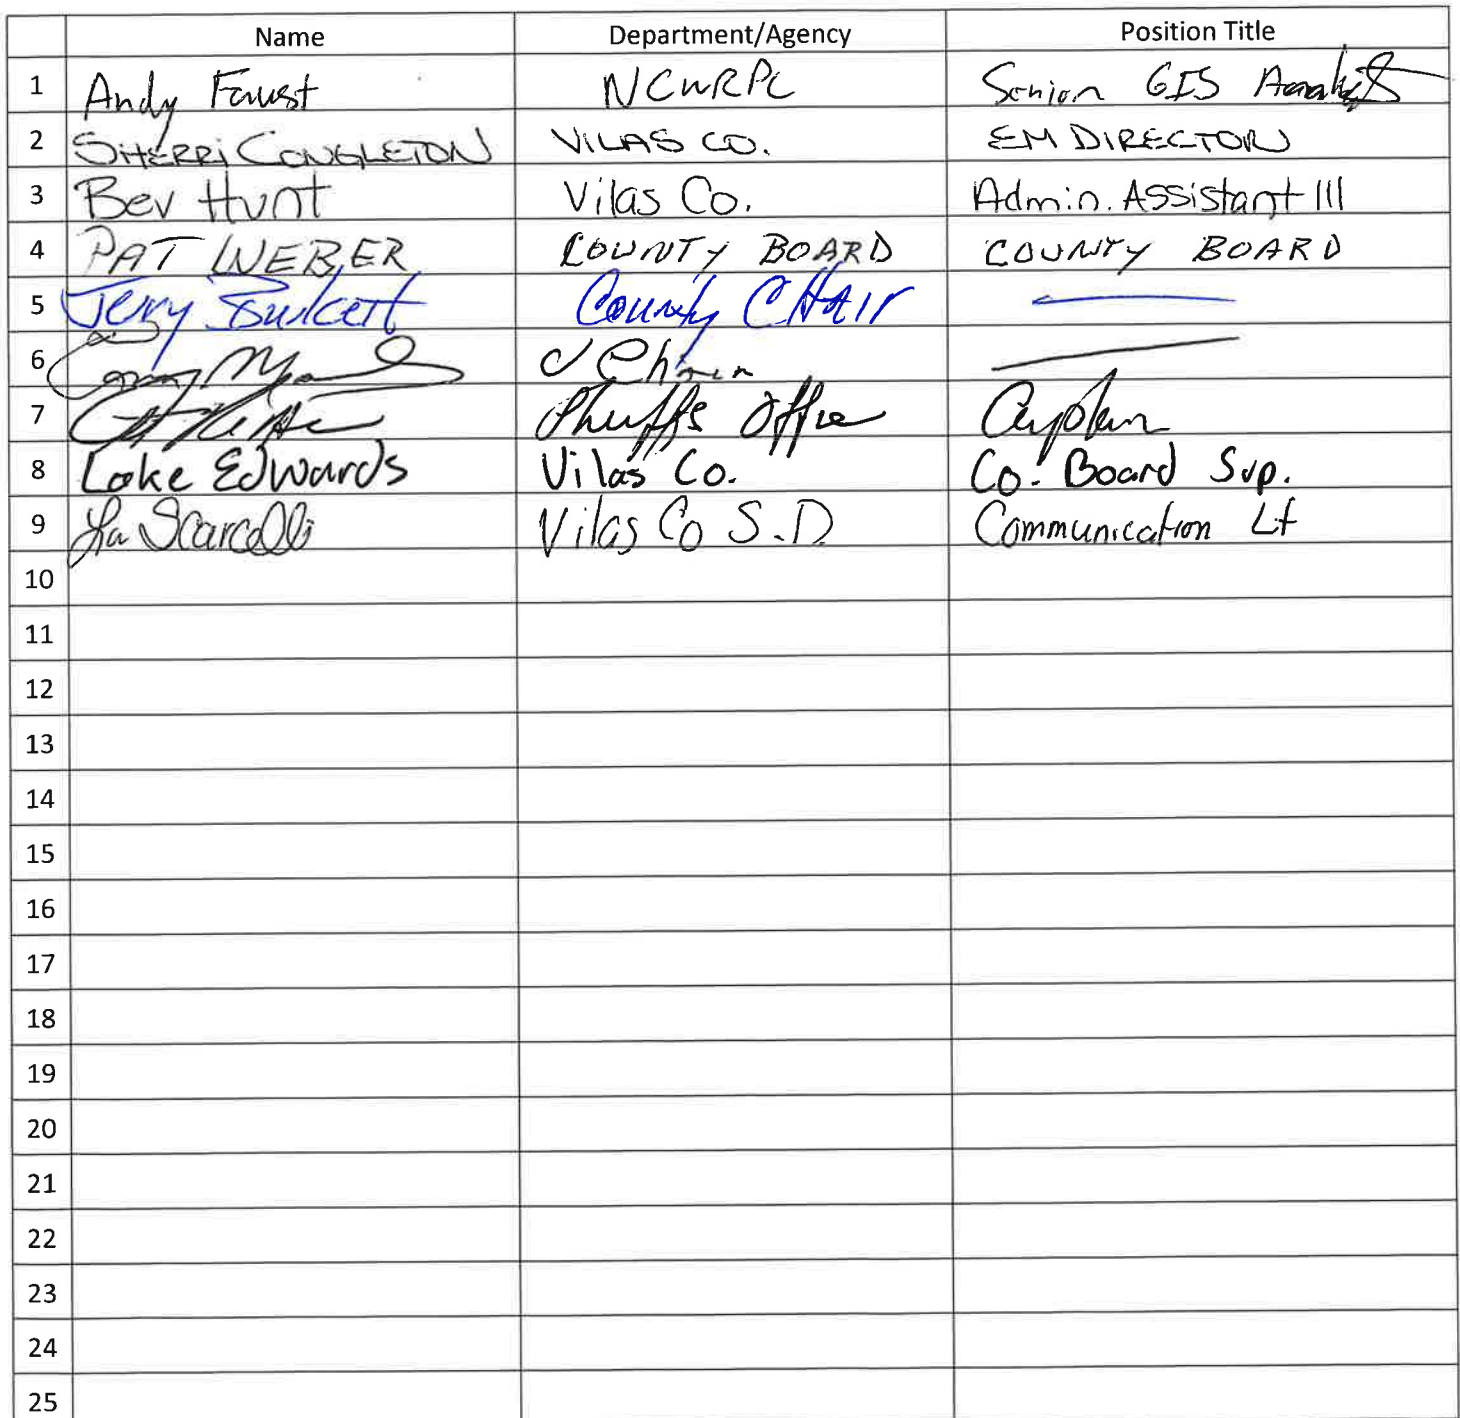 Name Department/Agency Position Title
1 Andy Faust NCWRPC Senior GIS Analyst
2 SHERRi CONGLETON VILAS CO. EM DIRECTOR
3 Bev Hunt Vilas Co. Admin. Assistant III
4 PAT WEBER COUNTY BOARD COUNTY BOARD
5 Jerry Burkett County CHAIr
6
7 Office
8 Loke Edwards Vilas Co. Co. Board Sup.
9 Scarcelli Vilas Co S.D. Communication Lt
10
11
12
13
14
15
16
17
18
19
20
21
22
23
24
25